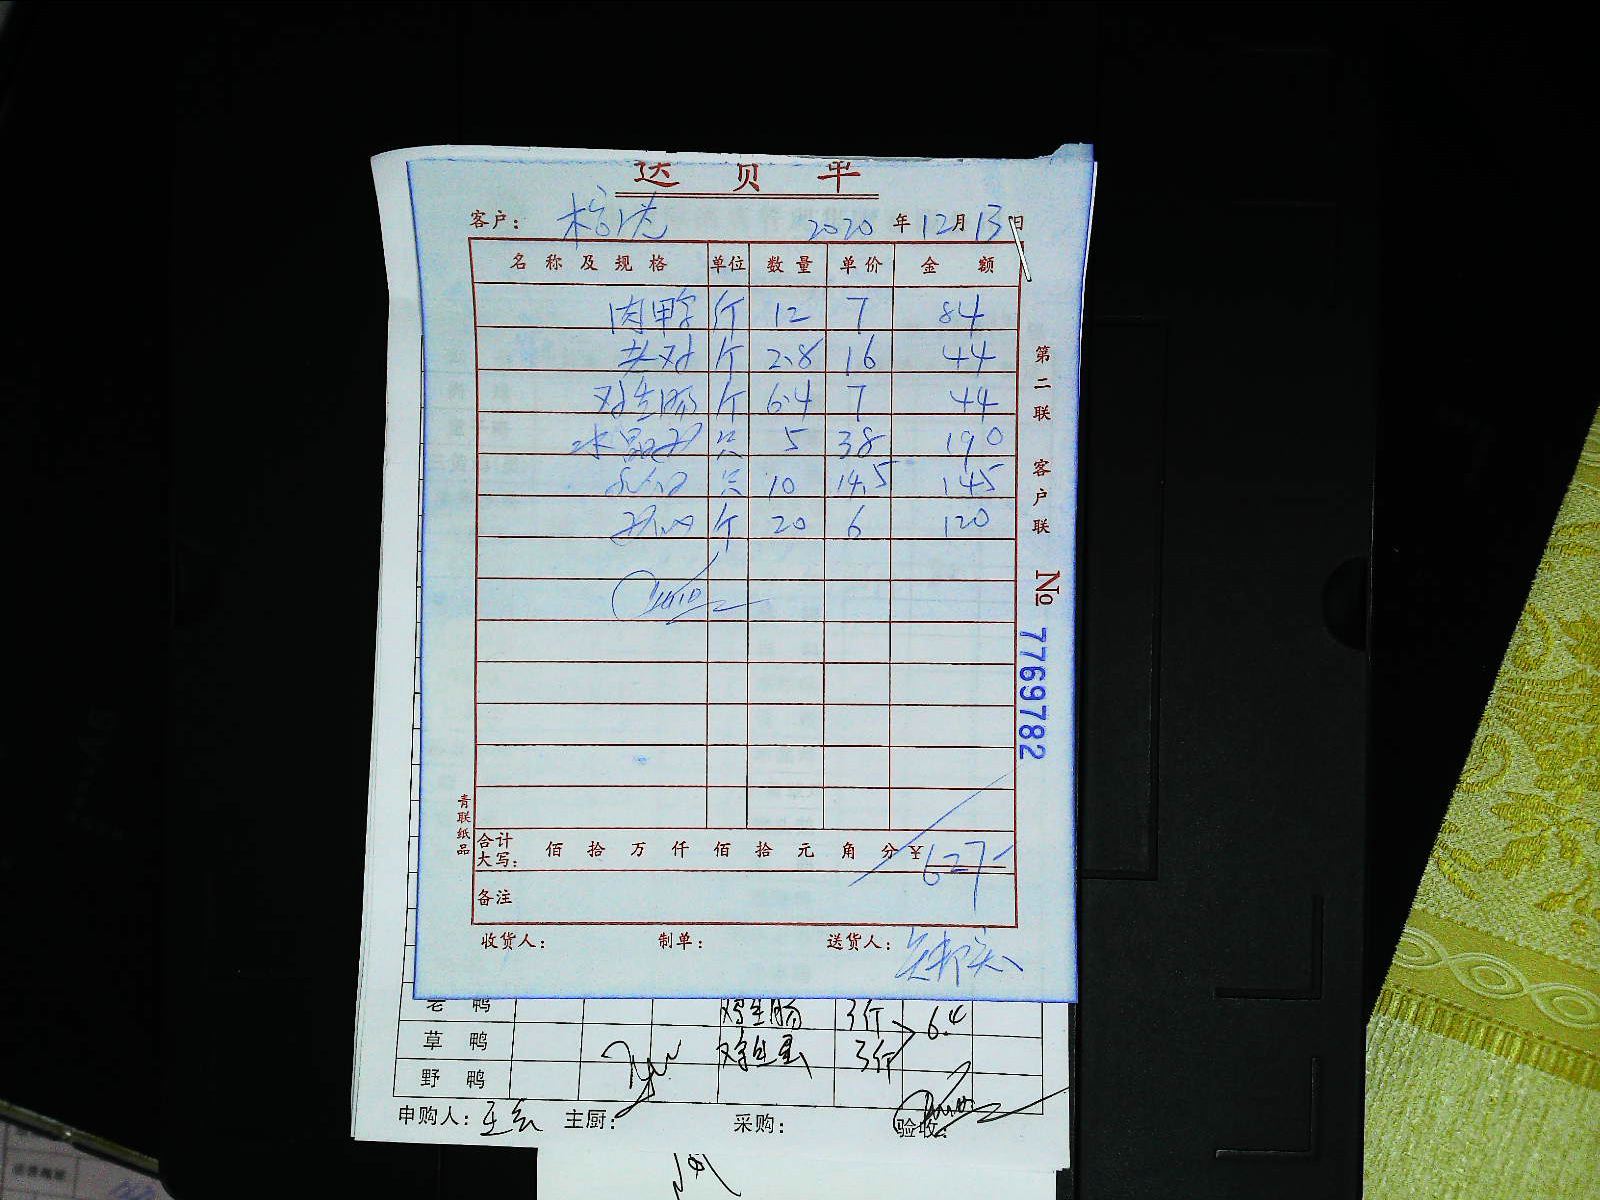 送 货 单
客户： 2020 年 12 月 13 日
名 称 及 规 格 单位 数 量 单 价 金 额
肉鸭 斤 12 7 84
老鸡 斤 2.8 16 44
鸡生肠 斤 6.4 7 44
水晶鸡 只 5 38 190
只 10 14.5 145
斤 20 6 120
合计大写： 佰 拾 万 仟 佰 拾 元 角 分 ¥ 627
备注
收货人： 制单： 送货人：
第二联 客户联
No 7769782
青联纸品
老 鸭 鸡生肠 3斤 6.4
草 鸭 鸡生蛋 3斤
野 鸭
申购人： 主厨： 采购： 验收：